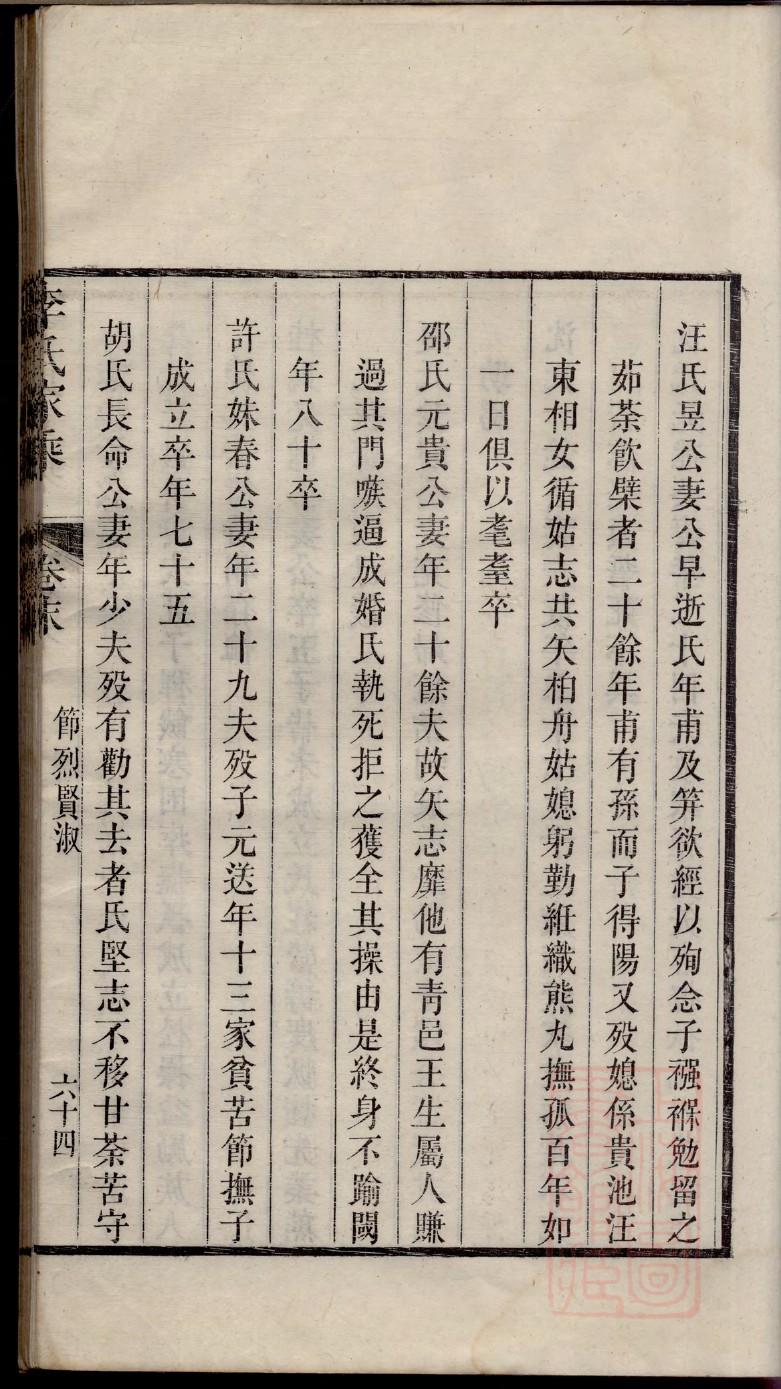 汪氏昱公妻公早逝氏年甫及笄欲經以殉念子襁褓勉留之
茹荼飲檗者二十餘年甫有孫而子得陽又歿媳係貴池汪
東相女循姑志共矢柏舟姑媳躬勤絍織熊丸撫孤百年如
一日俱以耄耋卒
邵氏元貴公妻年二十餘夫故矢志靡他有靑邑王生屬人賺
過其門嗾逼成婚氏執死拒之獲全其操由是終身不踰閾
年八十卒
許氏妹春公妻年二十九夫歿子元送年十三家貧苦節撫子
成立卒年七十五
胡氏長命公妻年少夫歿有勸其去者氏堅志不移甘荼苦守
李氏家乘 卷末 節烈賢淑 六十四